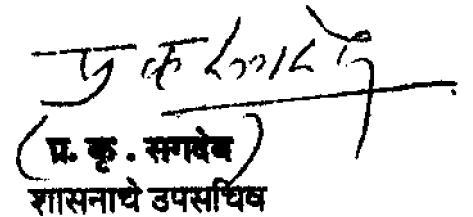 (प्र. कृ. सगदेव)
शासनाचे उपसचिव